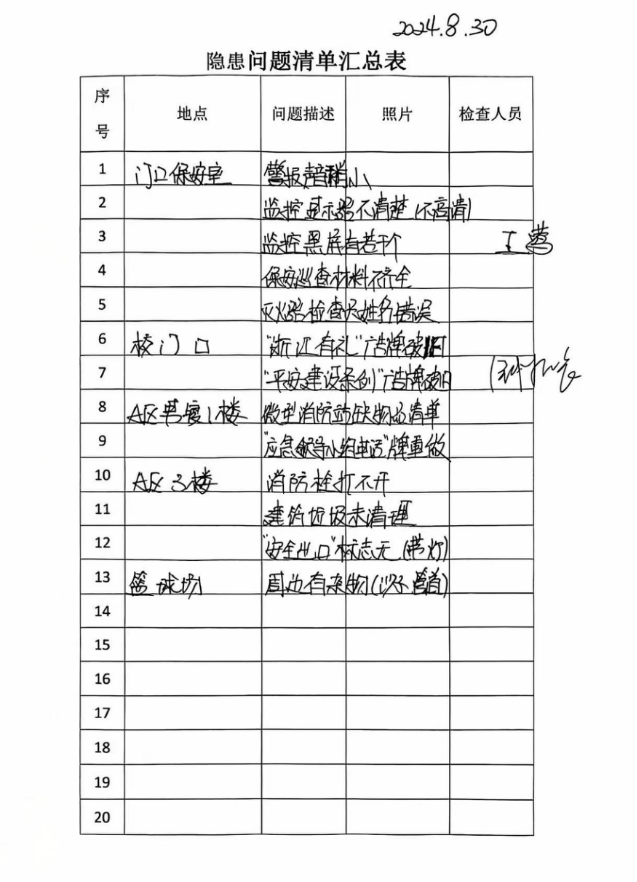 2024.8.30
隐患问题清单汇总表
序号 地点 问题描述 照片 检查人员
1 门卫保安室 警报声音稍小
2 监控显示器不清楚(不高清)
3 监控黑屏有若干个 王莺
4 保安巡查材料不齐全
5 灭火器检查人姓名错误
6 校门口 "浙江有礼"广告牌破旧
7 "平安建设条例"广告牌破旧
8 A区男寝1楼 微型消防站缺物品清单
9 "应急领导小组电话"牌重做
10 A区3楼 消防栓打不开
11 建筑垃圾未清理
12 "安全出口"标志无(带灯)
13 篮球场 周边有杂物
14
15
16
17
18
19
20